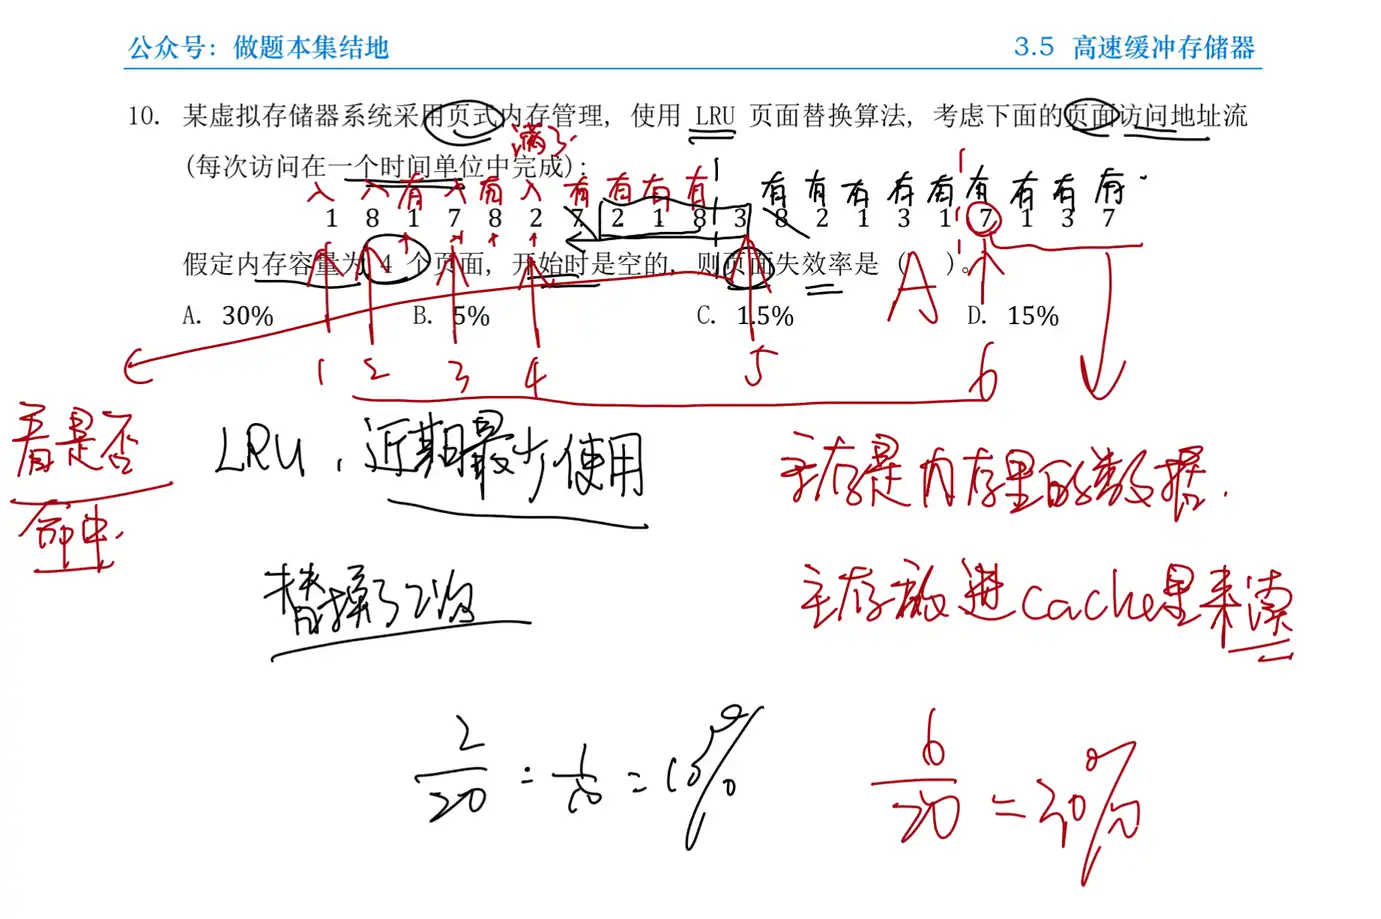 公众号：做题本集结地 3.5 高速缓冲存储器
10. 某虚拟存储器系统采用页式内存管理，使用 LRU 页面替换算法，考虑下面的页面访问地址流
满了
(每次访问在一个时间单位中完成)：
入 入 有 入 有 入 有 有 有 有 有 有 有 有 有 有 有 有 有
1 8 1 7 8 2 7 2 1 8 3 8 2 1 3 1 7 1 3 7
假定内存容量为 4 个页面，开始时是空的，则页面失效率是 ( )。
A
A. 30% B. 5% C. 1.5% D. 15%
1 2 3 4 5 6
看是否
命中.
LRU，近期最少使用
主存是内存里的数据.
替换了2次
主存放进cache里来凑
2/20 = 1/10 = 10%
6/20 = 30%